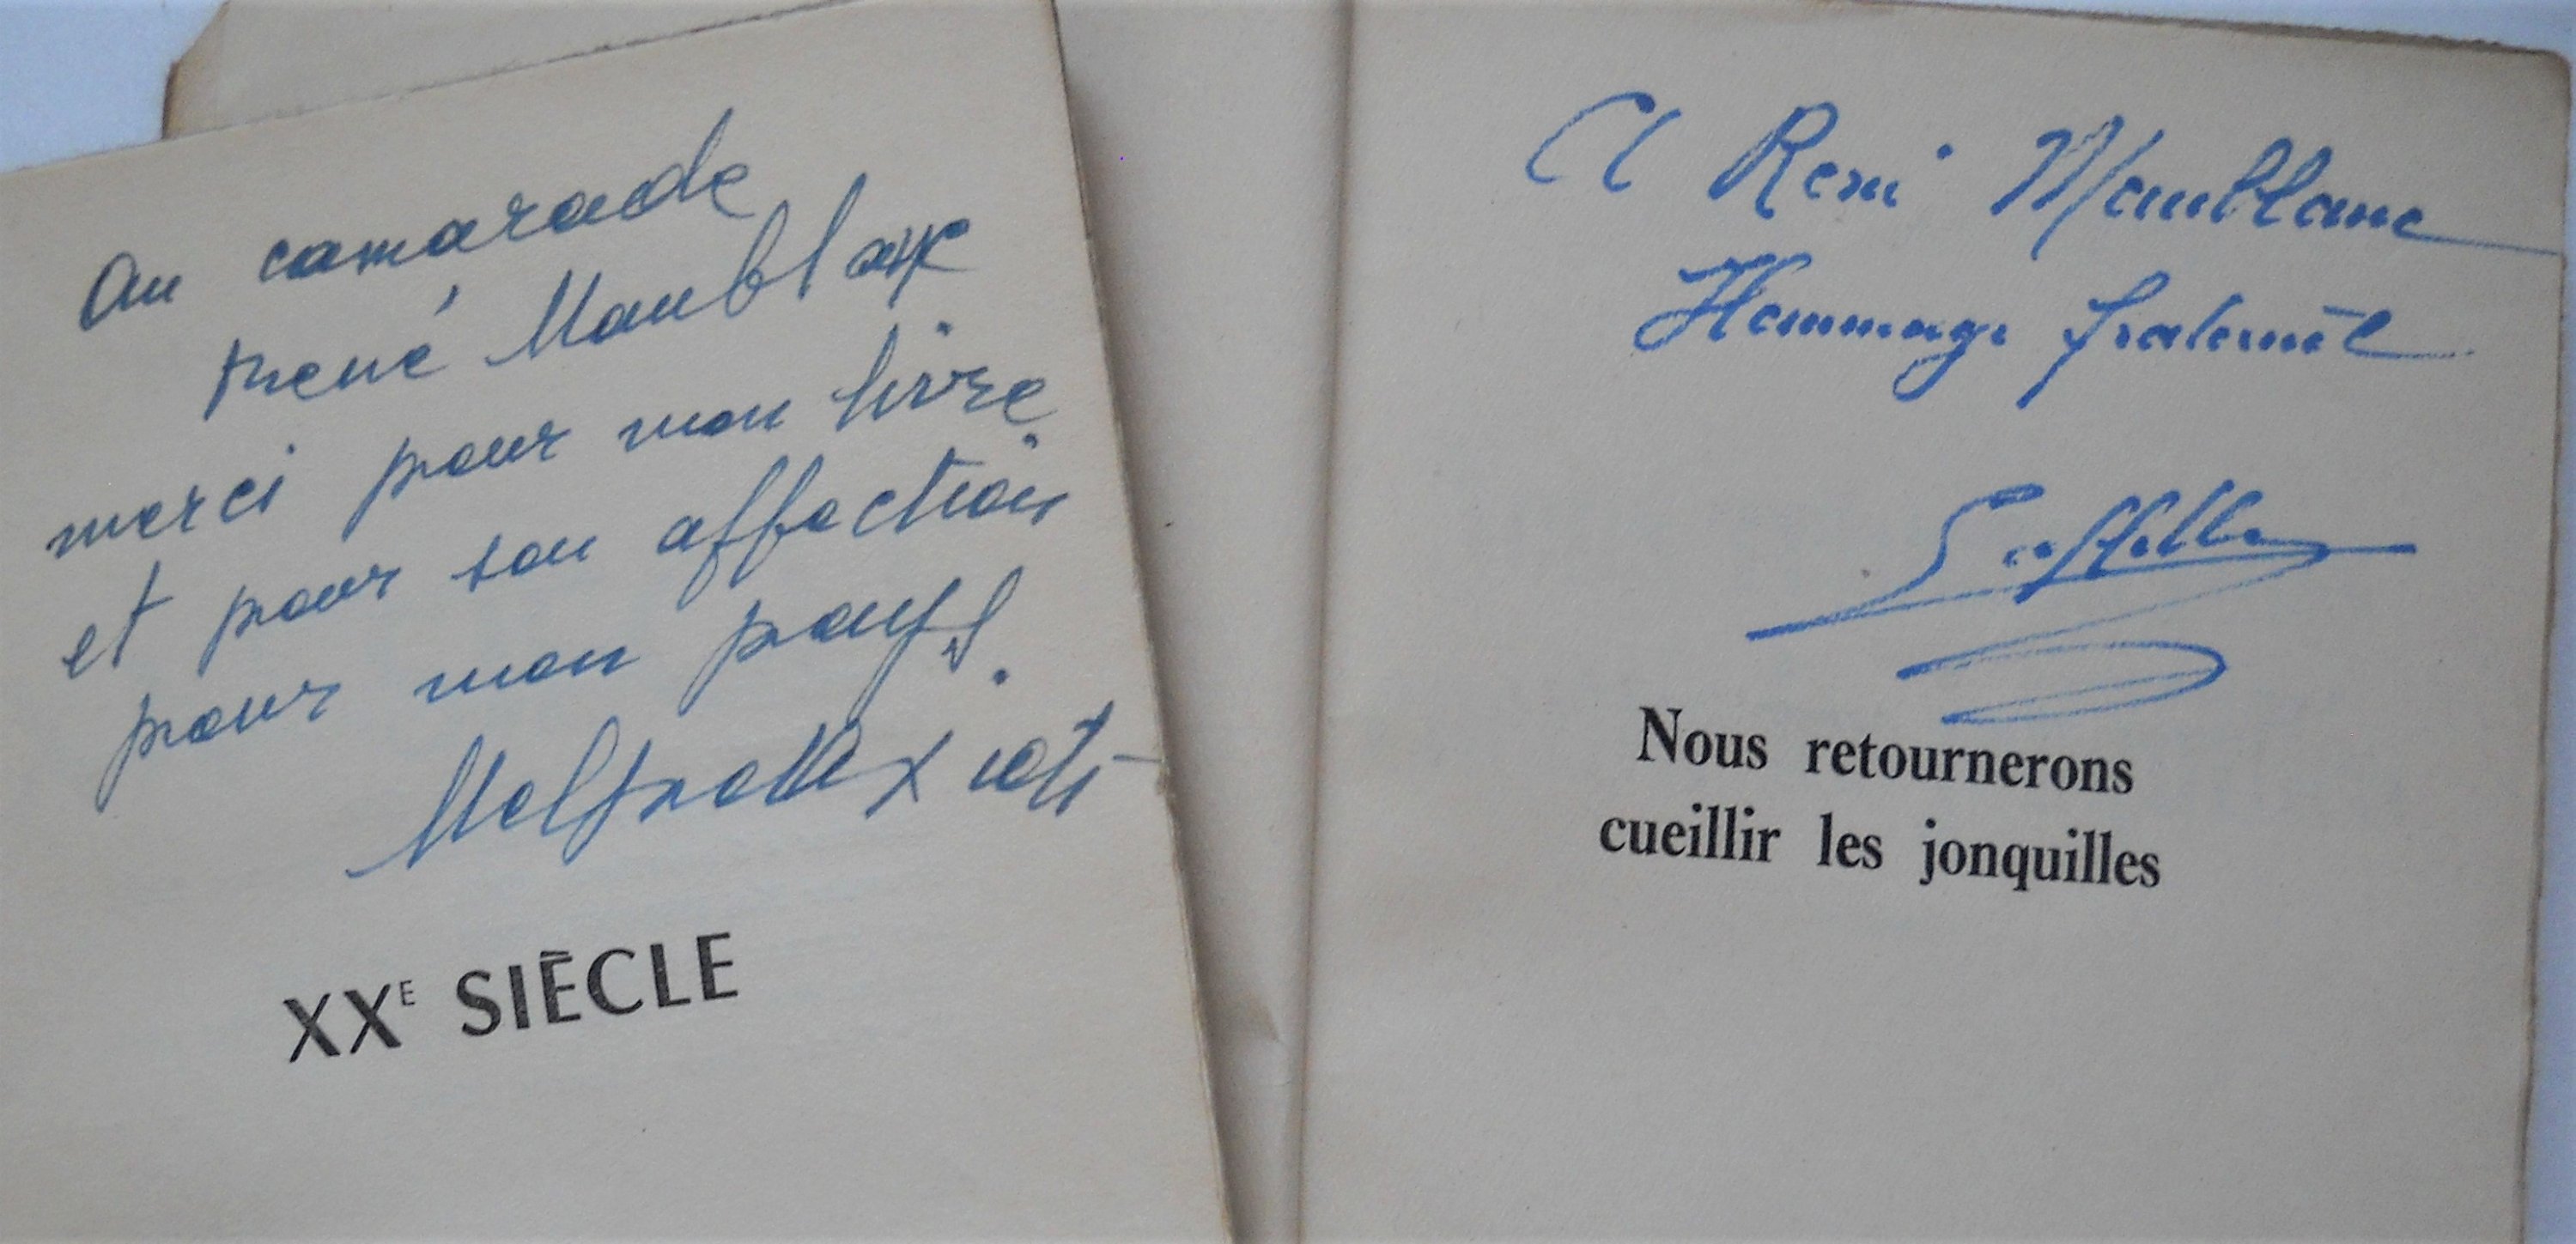 Au camarade
René Maublanc
merci pour mon livre
et pour son affection
pour mon pays.
Melpo Axioti
XXE SIÈCLE
A René Maublanc
Hommage fraternel
Laffitte
Nous retournerons
cueillir les jonquilles